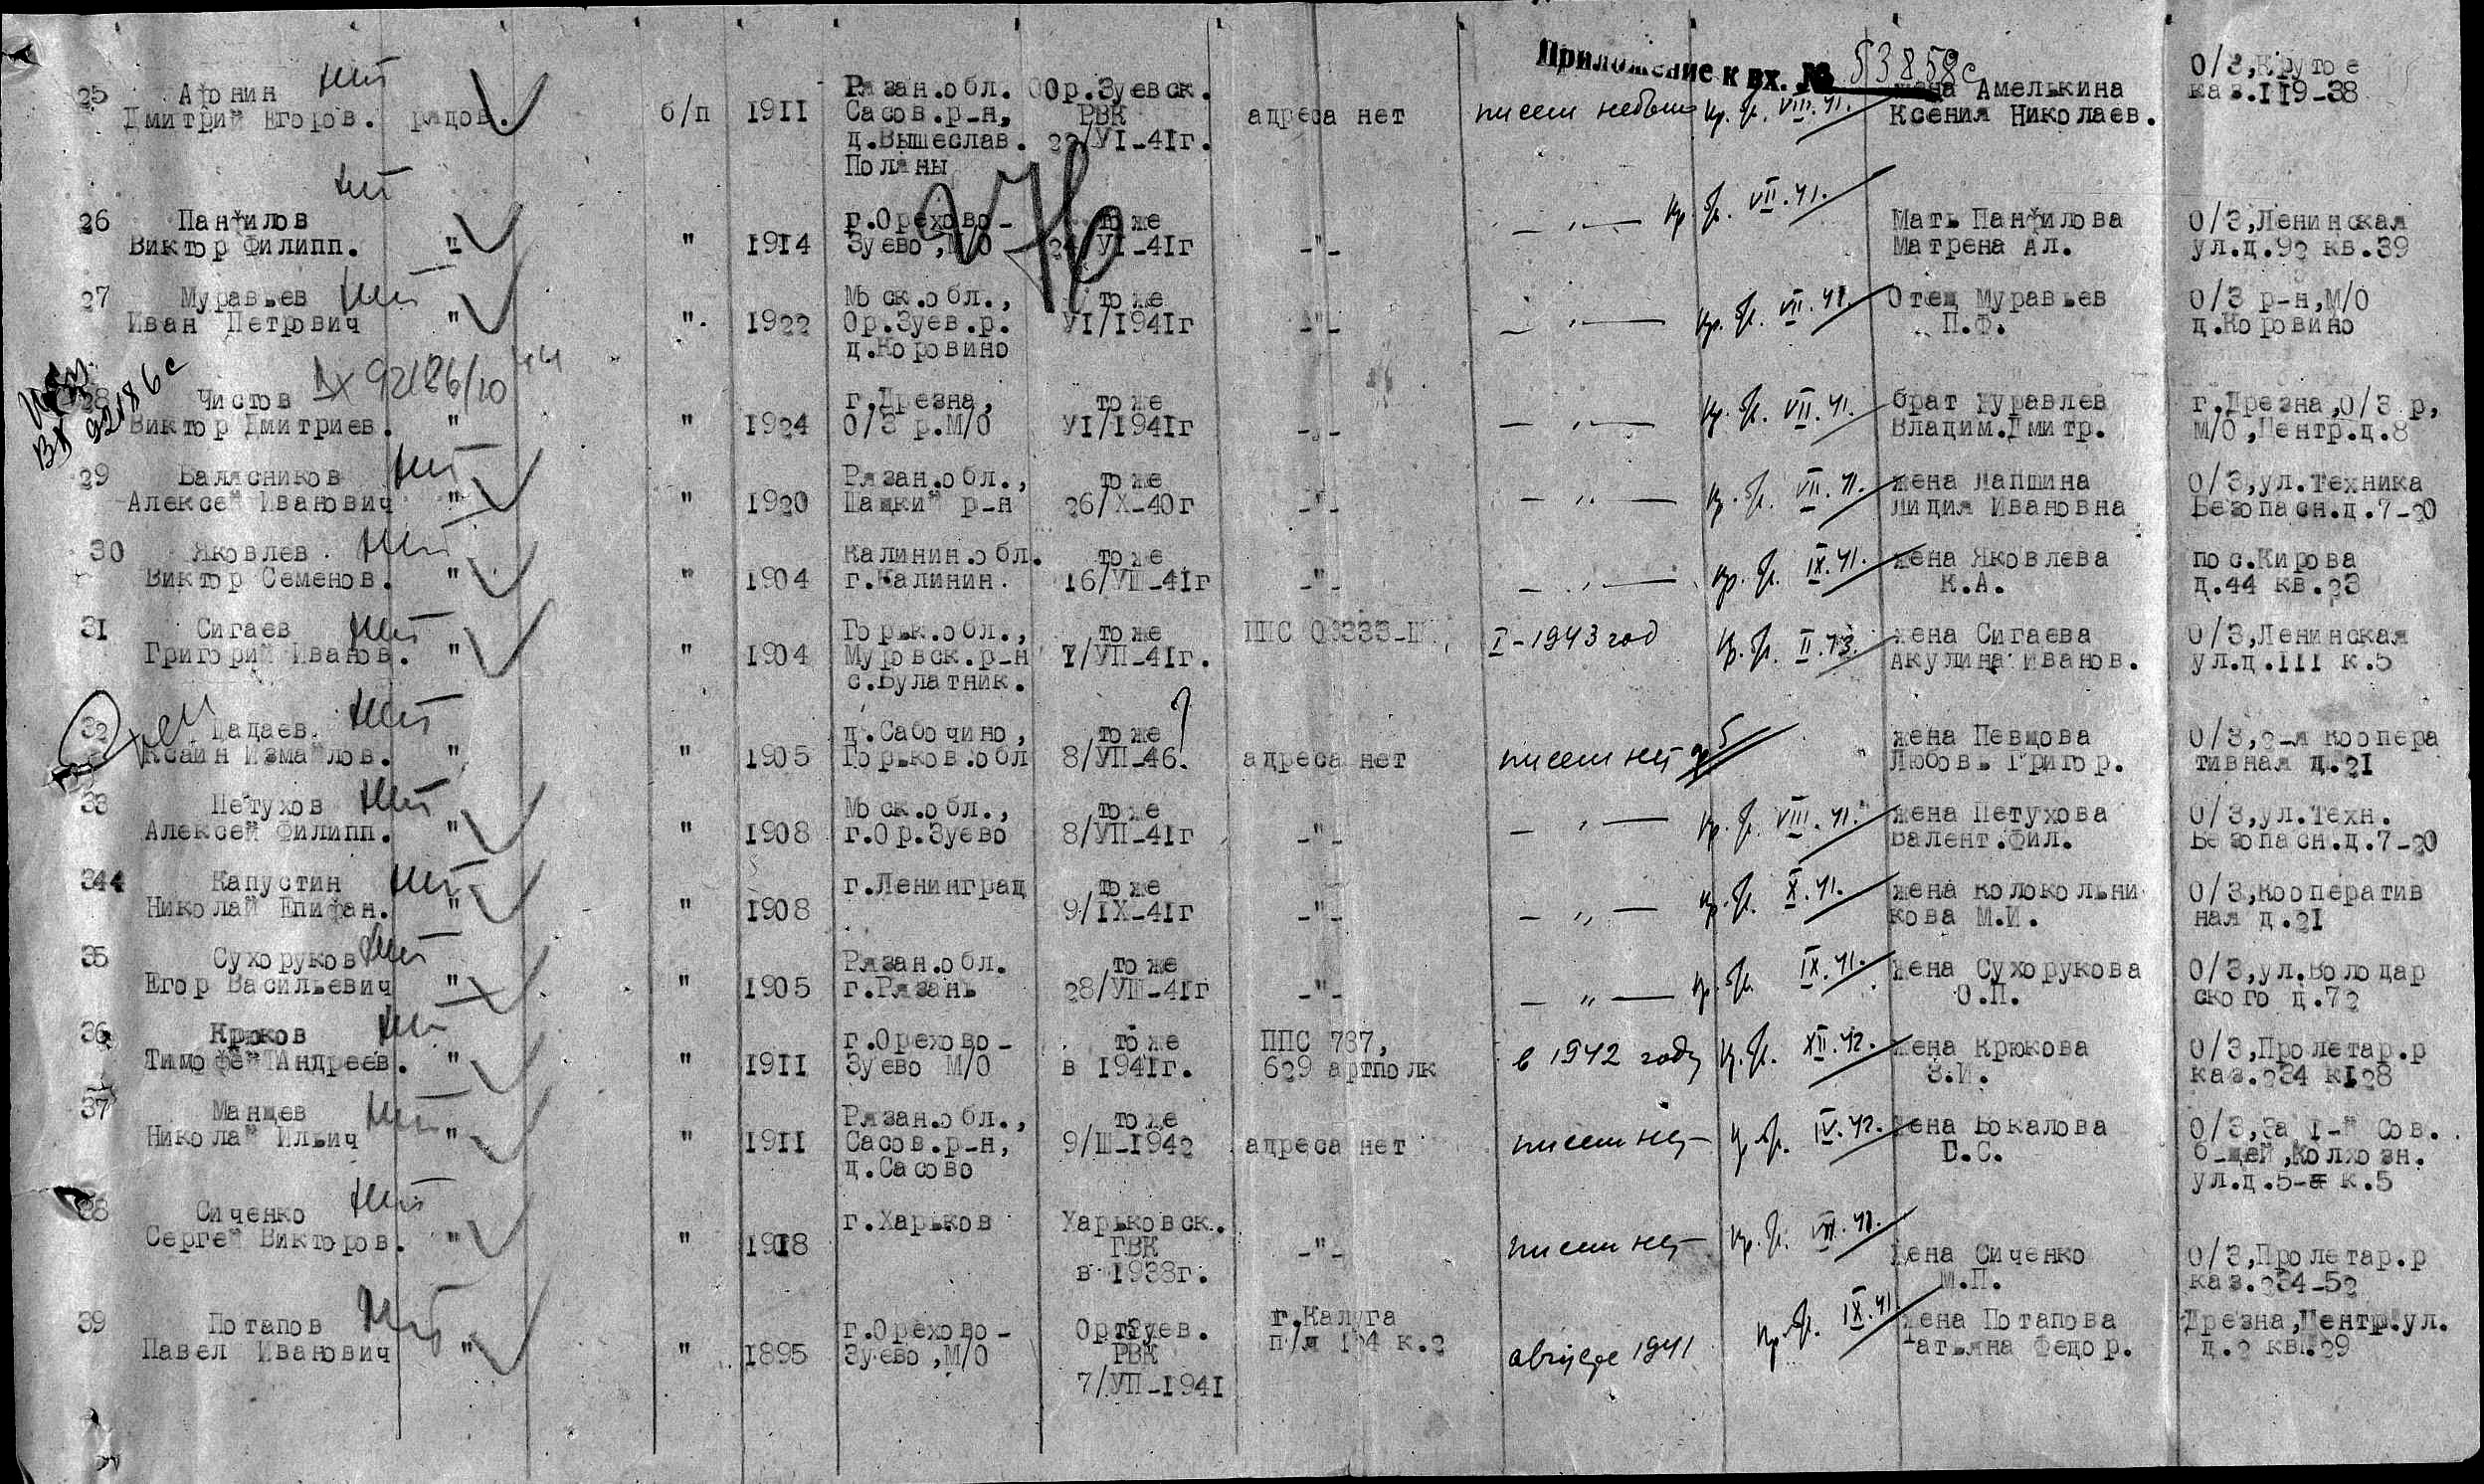 Приложение к вх. № 53858с
25 Афонин
Дмитрий Егоров. рядов. б/п 1911 Рязан.обл. Сасов.р-н, д.Вышеслав. Поляны Ор.Зуевск. РВК 22/УI-41г. адреса нет писем небыло Кр. бл. VIII.41. жена Амелькина Ксения Николаев. О/З,Крутое каз.119-38
26 Панфилов
Виктор Филипп. " " 1914 г.Орехово-Зуево,М/О то же 24/УI-41г -"- - " - VII.41. Мать Панфилова Матрена Ал. О/З,Ленинская ул.д.92 кв.39
27 Муравьев
Иван Петрович " " 1922 Моск.обл., Ор.Зуев.р. д.Коровино то же УI/1941г -"- - " - VII.41. Отец Муравьев П.Ф. О/З р-н,М/О д.Коровино
Вх 92186/10 44
вх 92186с
28 Чистов
Виктор Дмитриев. " " 1924 г.Дрезна, О/З р.М/О то же УI/1941г -"- - " - VII.41. брат Журавлев Владим.Дмитр. г.Дрезна,О/З р, М/О,Центр.д.8
29 Балясников
Алексей Иванович " " 1920 Рязан.обл., Шацкий р-н то же 26/Х-40г -"- - " - VII.41. жена Лапшина Лидия Ивановна О/З,ул.Техника Безопасн.д.7-20
30 Яковлев
Виктор Семенов. " " 1904 Калинин.обл. г.Калинин. то же 16/УШ-41г -"- - " - IX.41. жена Яковлева К.А. пос.Кирова д.44 кв.23
31 Сигаев
Григорий Иванов. " " 1904 Горьк.обл., Муровск.р-н с.Булатник. то же 7/УП-41г. ППС 03333-Ш I-1943 год II.43. жена Сигаева Акулина Иванов. О/З,Ленинская ул.д.111 к.5
32 Дадаев
Ксаин Измайлов. " " 1905 д.Сабочино, Горьков.обл то же 8/УП-46. адреса нет писем нет жена Певцова Любовь Григор. О/З,2-я Коопера тивная д.21
33 Петухов
Алексей Филипп. " " 1908 Моск.обл., г.Ор.Зуево то же 8/УП-41г -"- - " - VIII.41. жена Петухова Валент.Фил. О/З,ул.Техн. Безопасн.д.7-20
344 Капустин
Николай Епифан. " " 1908 г.Ленинград то же 9/IX-41г -"- - " - X.41. жена Колокольни кова М.И. О/З,Кооператив ная д.21
35 Сухоруков
Егор Васильевич " " 1905 Рязан.обл. г.Рязань то же 28/УШ-41г -"- - " - IX.41. жена Сухорукова О.П. О/З,ул.Володар ского д.72
36 Крюков
Тимофей Андреев. " " 1911 г.Орехово-Зуево М/О то же в 1941г. ППС 787, 629 артполк в 1942 году XII.42. жена Крюкова З.И. О/З,Пролетар.р каз.234 к128
37 Манцев
Николай Ильич " " 1911 Рязан.обл., Сасов.р-н, д.Сасово то же 9/Ш-1942 адреса нет писем нет IV.42. жена Бокалова Е.С. О/З,За 1-й Сов. б-цей,Колхозн. ул.д.5-а к.5
38 Сиченко
Сергей Викторов. " " 1918 г.Харьков Харьковск. ГВК в 1938г. -"- писем нет VII.41. жена Сиченко М.П. О/З,Пролетар.р каз.234-52
39 Потапов
Павел Иванович " " 1895 г.Орехово-Зуево,М/О Ор.Зуев. РВК 7/УП-1941 г.Калуга п/я 154 к.2 август 1941 IX.41 жена Потапова Татьяна Федор. Дрезна,Центр.ул. д.2 кв.29